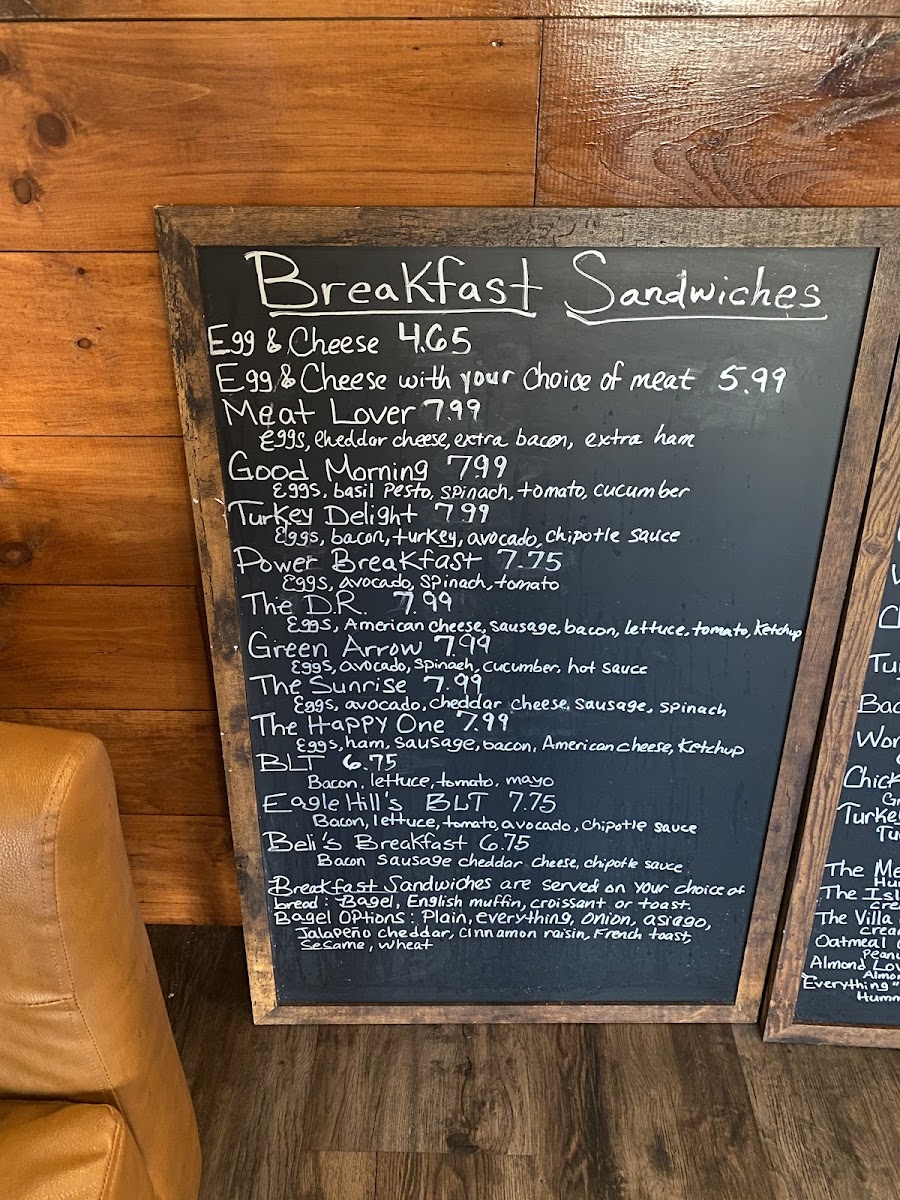 Breakfast Sandwiches
Egg & Cheese 4.65
Egg & Cheese with your choice of meat 5.99
Meat Lover 7.99
Eggs, cheddar cheese, extra bacon, extra ham
Good Morning 7.99
Eggs, basil pesto, spinach, tomato, cucumber
Turkey Delight 7.99
Eggs, bacon, turkey, avocado, chipotle sauce
Power Breakfast 7.75
Eggs, avocado, spinach, tomato
The D.R. 7.99
Eggs, American cheese, sausage, bacon, lettuce, tomato, ketchup
Green Arrow 7.99
Eggs, avocado, spinach, cucumber, hot sauce
The Sunrise 7.99
Eggs, avocado, cheddar cheese, sausage, spinach
The Happy One 7.99
Eggs, ham, sausage, bacon, American cheese, ketchup
BLT 6.75
Bacon, lettuce, tomato, mayo
Eagle Hill's BLT 7.75
Bacon, lettuce, tomato, avocado, chipotle sauce
Beli's Breakfast 6.75
Bacon sausage cheddar cheese, chipotle sauce
Breakfast Sandwiches are served on your choice of
bread: Bagel, English muffin, croissant or toast.
Bagel Options: Plain, everything, onion, asiago,
Jalapeño cheddar, cinnamon raisin, French toast,
Sesame, wheat
The
The
The Villa
Oatmeal
Almond
Everything"